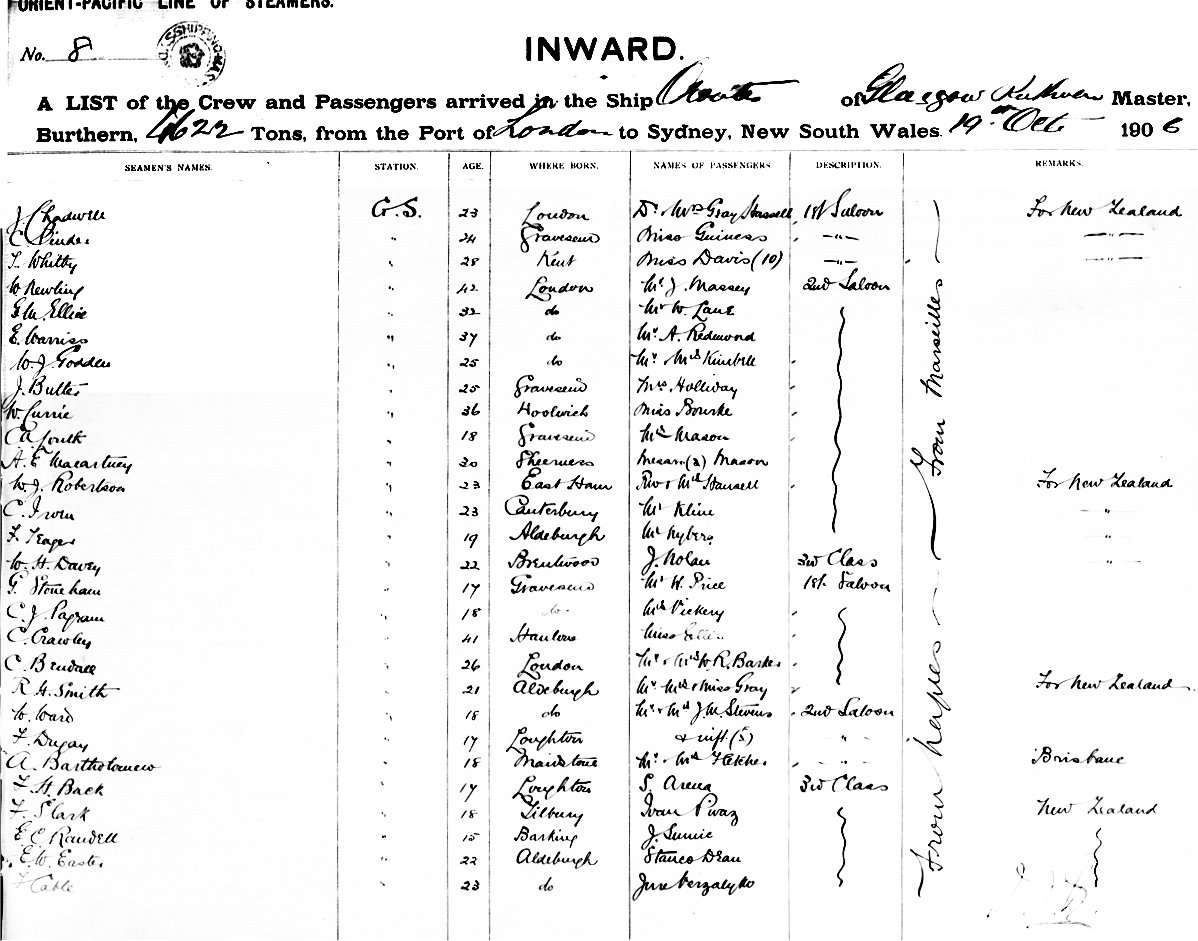 ORIENT-PACIFIC LINE OF STEAMERS.
No. 8
INWARD.
A LIST of the Crew and Passengers arrived in the Ship of Glasgow Master,
Burthern, 4622 Tons, from the Port of London to Sydney, New South Wales. 19th Oct 1906
SEAMEN'S NAMES. STATION. AGE. WHERE BORN. NAMES OF PASSENGERS. DESCRIPTION. REMARKS.
J. Chadwell G.S. 23 London Dr & Mrs Gray Hassell 1st Saloon For New Zealand
C. " 24 Gravesend Miss Guiness —"— —"—
T. Whitby " 28 Kent Miss Davis (10) —"— —"—
W. Newling " 42 London Mr J. Massey 2nd Saloon
G. M. Ellice " 32 do Mr W. Lane
E. Warriss " 37 do Mr A. Redmond
W. J. Godden " 25 do Mr & Mrs Kimbell
J. Butter " 25 Gravesend Mrs Holliday
W. Currie " 36 Woolwich Miss Bourke
C. A. " 18 Gravesend Mrs Mason
A. E. Macartney " 20 Sheerness Mason
W. J. Robertson " 23 East Ham Rev & Mrs Hansell For New Zealand
C. Irwin " 23 Canterbury Mr Kline "
F. Yeager " 19 Aldeburgh Mr Nyberg "
W. H. Davey " 22 Brentwood J. Nolan 3rd Class "
G. Stoneham " 17 Gravesend Mr H. Price 1st Saloon
C. J. Pagram " 18 do Mrs Vickery
C. Crawley " 41 Miss Ellis
C. Bendall " 26 London Mr & Mrs W. R. Barker
R. H. Smith " 21 Aldeburgh Mr Mrs & Miss Gray For New Zealand
W. Ward " 18 do Mr & Mrs J. M. Stevens 2nd Saloon
F. Dugay " 17 Loughton & inft. (5) "
A. Bartholomew " 18 Maidstone Mr & Mrs - " - Brisbane
F. H. Back " 17 Loughton S. Arena 3rd Class
F. Slark " 18 Tilbury Ivan New Zealand
E. C. Randell " 15 Barking J. Sunic
E. W. Easter " 22 Aldeburgh
F. Cable " 23 do
From Naples
From Marseilles